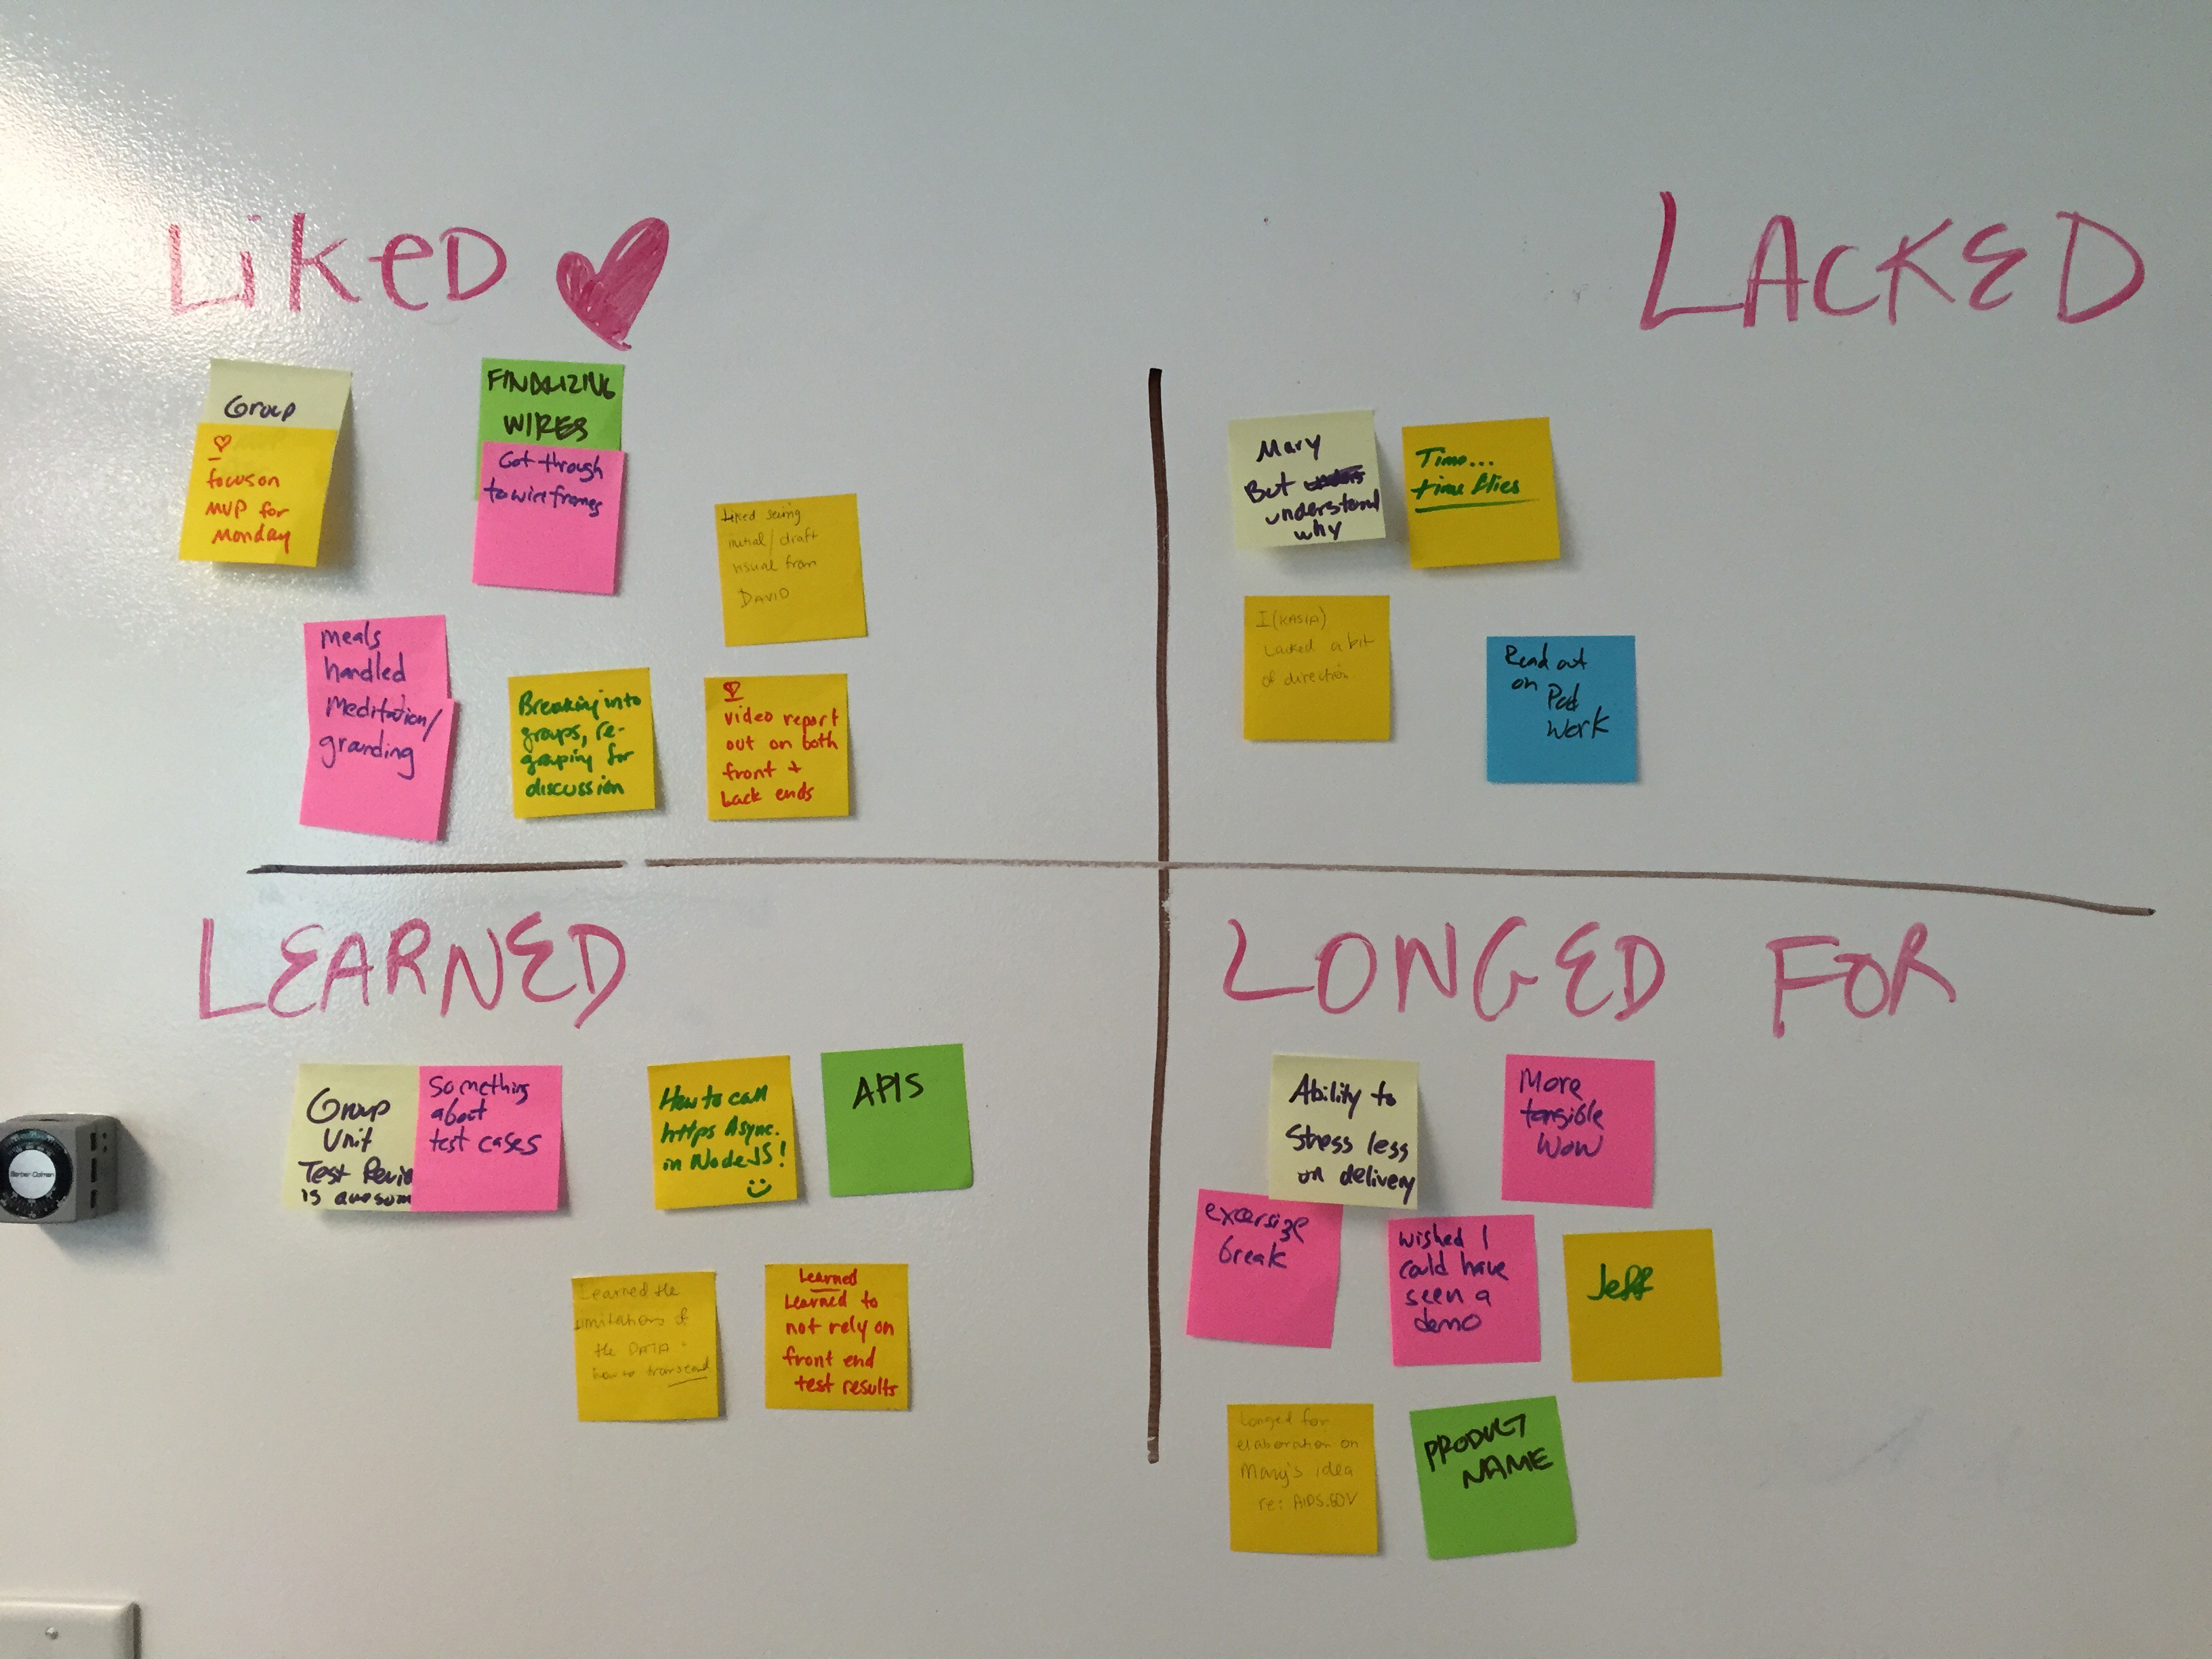 LiKeD
LACKED
Group
focus on
MVP for
Monday
FINALIZING
WIRES
Got through
to wireframes
Liked seeing
initial/draft
visual from
DAVID
meals
handled
Meditation/
grounding
Breaking into
groups, re-
grouping for
discussion
video report
out on both
front +
back ends
Mary
But
understand
why
Time...
time flies
I (KASIA)
Lacked a bit
of direction.
Read out
on Pod
Work
LEARNED
LONGED FOR
Group
Unit
Test Revie
is awesom
Something
about
test cases
How to call
https Async.
in NodeJS!
APIS
Learned the
limitations of
the DATA
how to transcend
Learned
Learned to
not rely on
front end
test results
Ability to
Stress less
on delivery
More
tangible
Wow
excersize
break
wished I
could have
seen a
demo
Jeff
Longed for
elaboration on
Mary's idea
re: AIDS.GOV
PRODUCT
NAME
Barber Colman